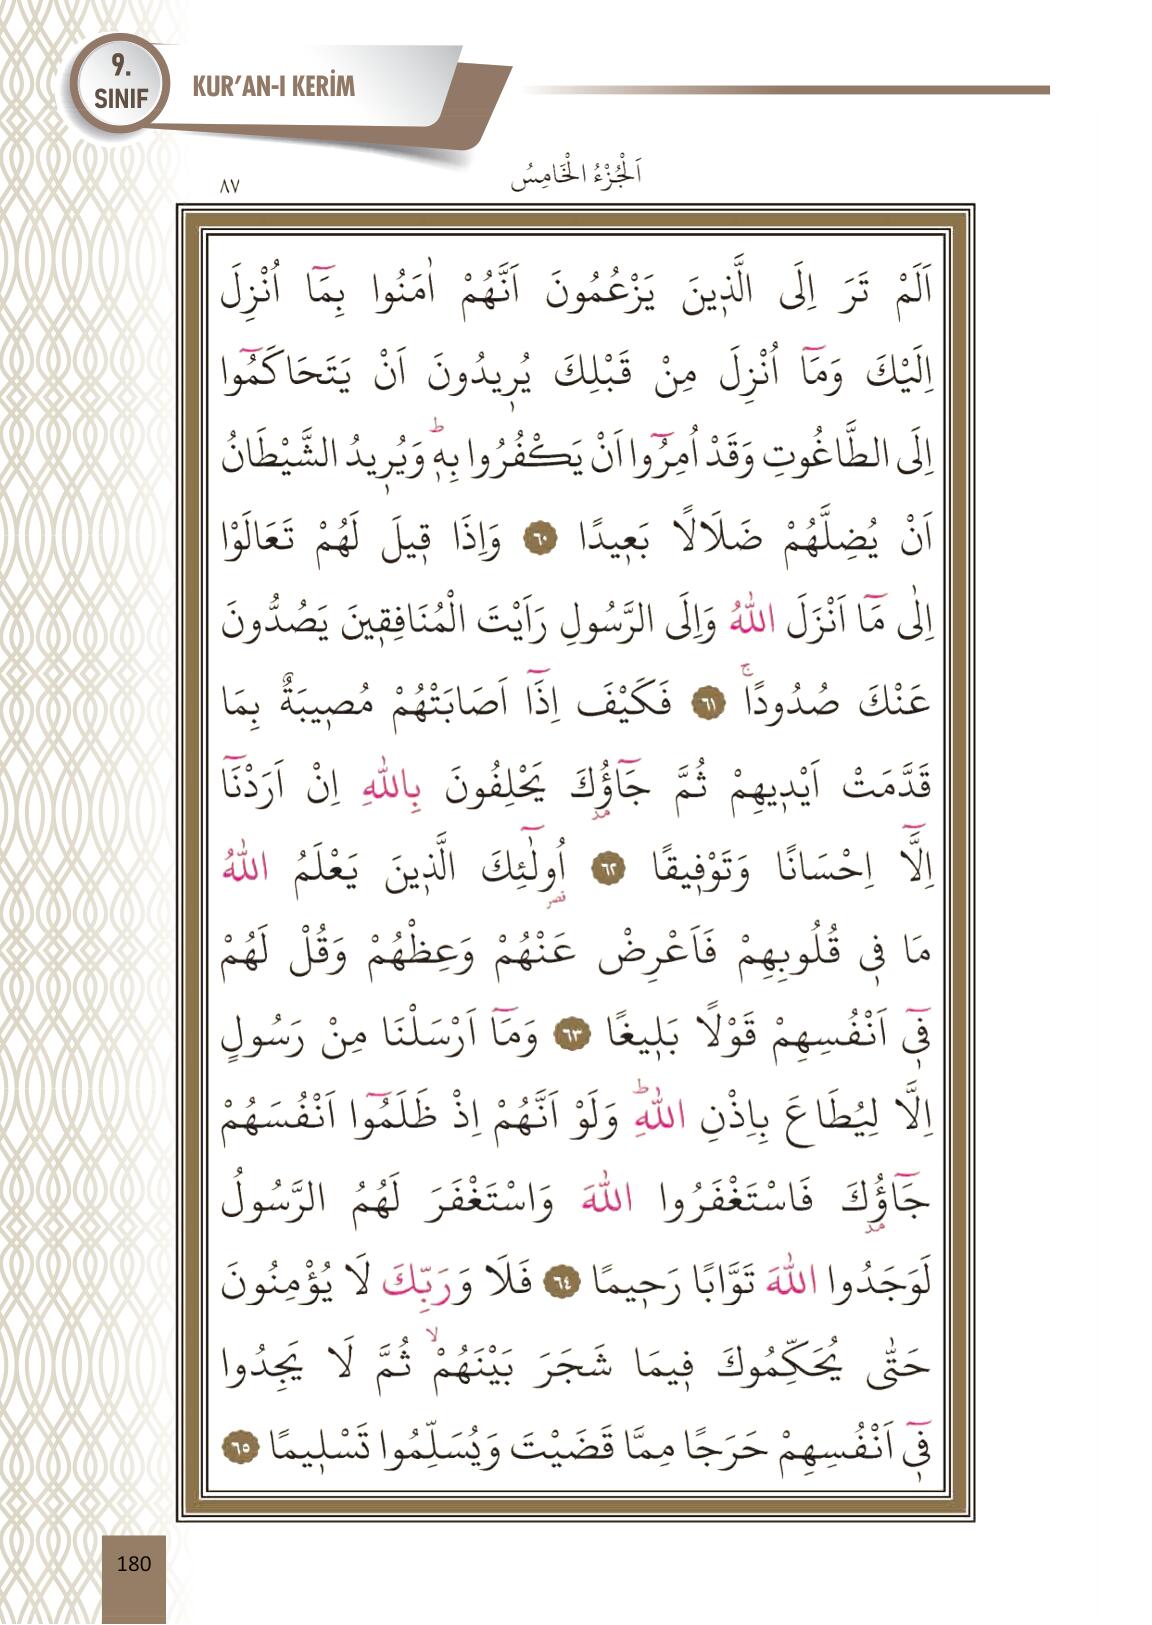 9.
SINIF
KUR'AN-I KERİM
اَلْجُزْءُ الْخَامِسُ
٨٧
اَلَمْ تَرَ اِلَى الَّذ۪ينَ يَزْعُمُونَ اَنَّهُمْ اٰمَنُوا بِمَٓا اُنْزِلَ
اِلَيْكَ وَمَٓا اُنْزِلَ مِنْ قَبْلِكَ يُر۪يدُونَ اَنْ يَتَحَاكَمُٓوا
اِلَى الطَّاغُوتِ وَقَدْ اُمِرُٓوا اَنْ يَكْفُرُوا بِه۪ۜ وَيُر۪يدُ الشَّيْطَانُ
اَنْ يُضِلَّهُمْ ضَلَالًا بَع۪يدًا ﴿٦٠﴾ وَاِذَا ق۪يلَ لَهُمْ تَعَالَوْا
اِلٰى مَٓا اَنْزَلَ اللّٰهُ وَاِلَى الرَّسُولِ رَاَيْتَ الْمُنَافِق۪ينَ يَصُدُّونَ
عَنْكَ صُدُودًاۚ ﴿٦١﴾ فَكَيْفَ اِذَٓا اَصَابَتْهُمْ مُص۪يبَةٌ بِمَا
قَدَّمَتْ اَيْد۪يهِمْ ثُمَّ جَٓاؤُ۫كَ يَحْلِفُونَ بِاللّٰهِ اِنْ اَرَدْنَٓا
اِلَّٓا اِحْسَانًا وَتَوْف۪يقًا ﴿٦٢﴾ اُو۬لٰٓئِكَ الَّذ۪ينَ يَعْلَمُ اللّٰهُ
مَا ف۪ي قُلُوبِهِمْ فَاَعْرِضْ عَنْهُمْ وَعِظْهُمْ وَقُلْ لَهُمْ
ف۪ٓي اَنْفُسِهِمْ قَوْلًا بَل۪يغًا ﴿٦٣﴾ وَمَٓا اَرْسَلْنَا مِنْ رَسُولٍ
اِلَّا لِيُطَاعَ بِاِذْنِ اللّٰهِۜ وَلَوْ اَنَّهُمْ اِذْ ظَلَمُٓوا اَنْفُسَهُمْ
جَٓاؤُ۫كَ فَاسْتَغْفَرُوا اللّٰهَ وَاسْتَغْفَرَ لَهُمُ الرَّسُولُ
لَوَجَدُوا اللّٰهَ تَوَّابًا رَح۪يمًا ﴿٦٤﴾ فَلَا وَرَبِّكَ لَا يُؤْمِنُونَ
حَتّٰى يُحَكِّمُوكَ ف۪يمَا شَجَرَ بَيْنَهُمْۙ ثُمَّ لَا يَجِدُوا
ف۪ٓي اَنْفُسِهِمْ حَرَجًا مِمَّا قَضَيْتَ وَيُسَلِّمُوا تَسْل۪يمًا ﴿٦٥﴾
180